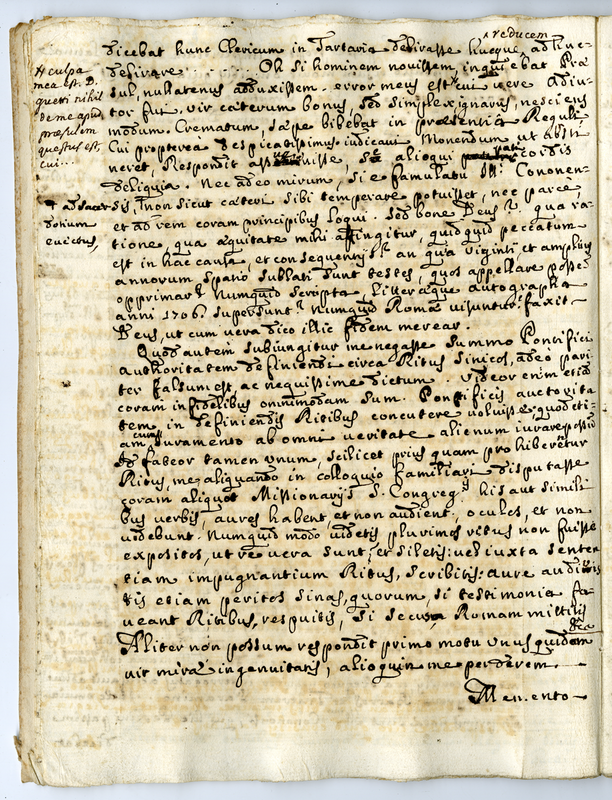 reducem
dicebat hunc Clericum in Tartaria delirasse hucque ad
delirare . . . . . . Oh si hominem novissem, inquiebat Præ
sul, nullatenus adduxissem. error meus est, cui vere adiu-
tor fui. vir cæterum bonus, sed simplex ignarus, nesciens
modum. Crematum, sæpe bibebat in præsentia Reguli
Cui propterea despicatissimus iudicavi Monendum ut absti
neret, Respondit, alioqui cordis
deliquia. Nec adeo mirum, si e famulatu Conone-
sis, non sicut cæteri sibi temperare potuisset, nec parce,
et ad rem coram principibus loqui. Sed bone Deus? qua ra-
tione, qua æquitate mihi affingitur, quidquid peccatum
est in hac causa, et consequenter? an quia viginti, et amplius
annorum spatio sublati sunt testes, quos appellare posse
opprimar? Numquid scripta, litteræque autographa
anni 1706. supersunt? Numquid Romæ visuntur: faxit
Deus, ut cum vera dico illic fidem merear.
Quod autem subiungitur me negasse Summo Pontifici
authoritatem definiendi circa Ritus Sinicos, adeo pari
ter falsum est, ac nequissime dictum. Videor enim etiã
coram infidelibus ommimodam Sum. Pontificis auctorita
tem, in definiendis Ritibus concutere voluisse, quod eti-
am cum Juramento ab omni veritate alienum iurare possũ
fateor tamen unum, scilicet prius quam prohiberentur
Ritus, me aliquando in colloquio familiari disputasse
coram aliquot Missionarijs S. Congreg. his aut simili
bus verbis, aures habent, et non audient; oculos, et non
videbunt. Numquid modo videtis plurimos ritus non fuisse
expositos, ut re vera sunt, et siletis: vel iuxta senten
tiam impugnantium Ritus, scribitis: aure audi
tis etiam peritos Sinas, quorum, si testimonia fa
veant Ritibus, respuitis, si secus Romam mittitis
Aliter non possum respondit primo motu unus quidem
vir miræ ingenuitatis, alioquin me perderem.
Memento
# culpa
mea est. D.
questi nihil
de me apud
præsulem
questus est,
cui...
ad sacer
dotium
evectus,